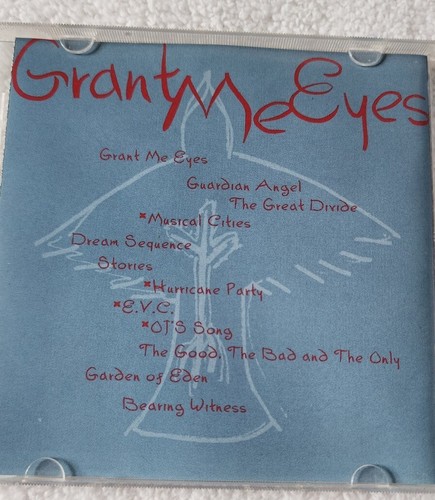 Grant Me Eyes
Grant Me Eyes
Guardian Angel
The Great Divide
*Musical Cities
Dream Sequence
Stories
*Hurricane Party
*E.V.C.
*OJ'S Song
The Good, The Bad and The Only
Garden of Eden
Bearing Witness